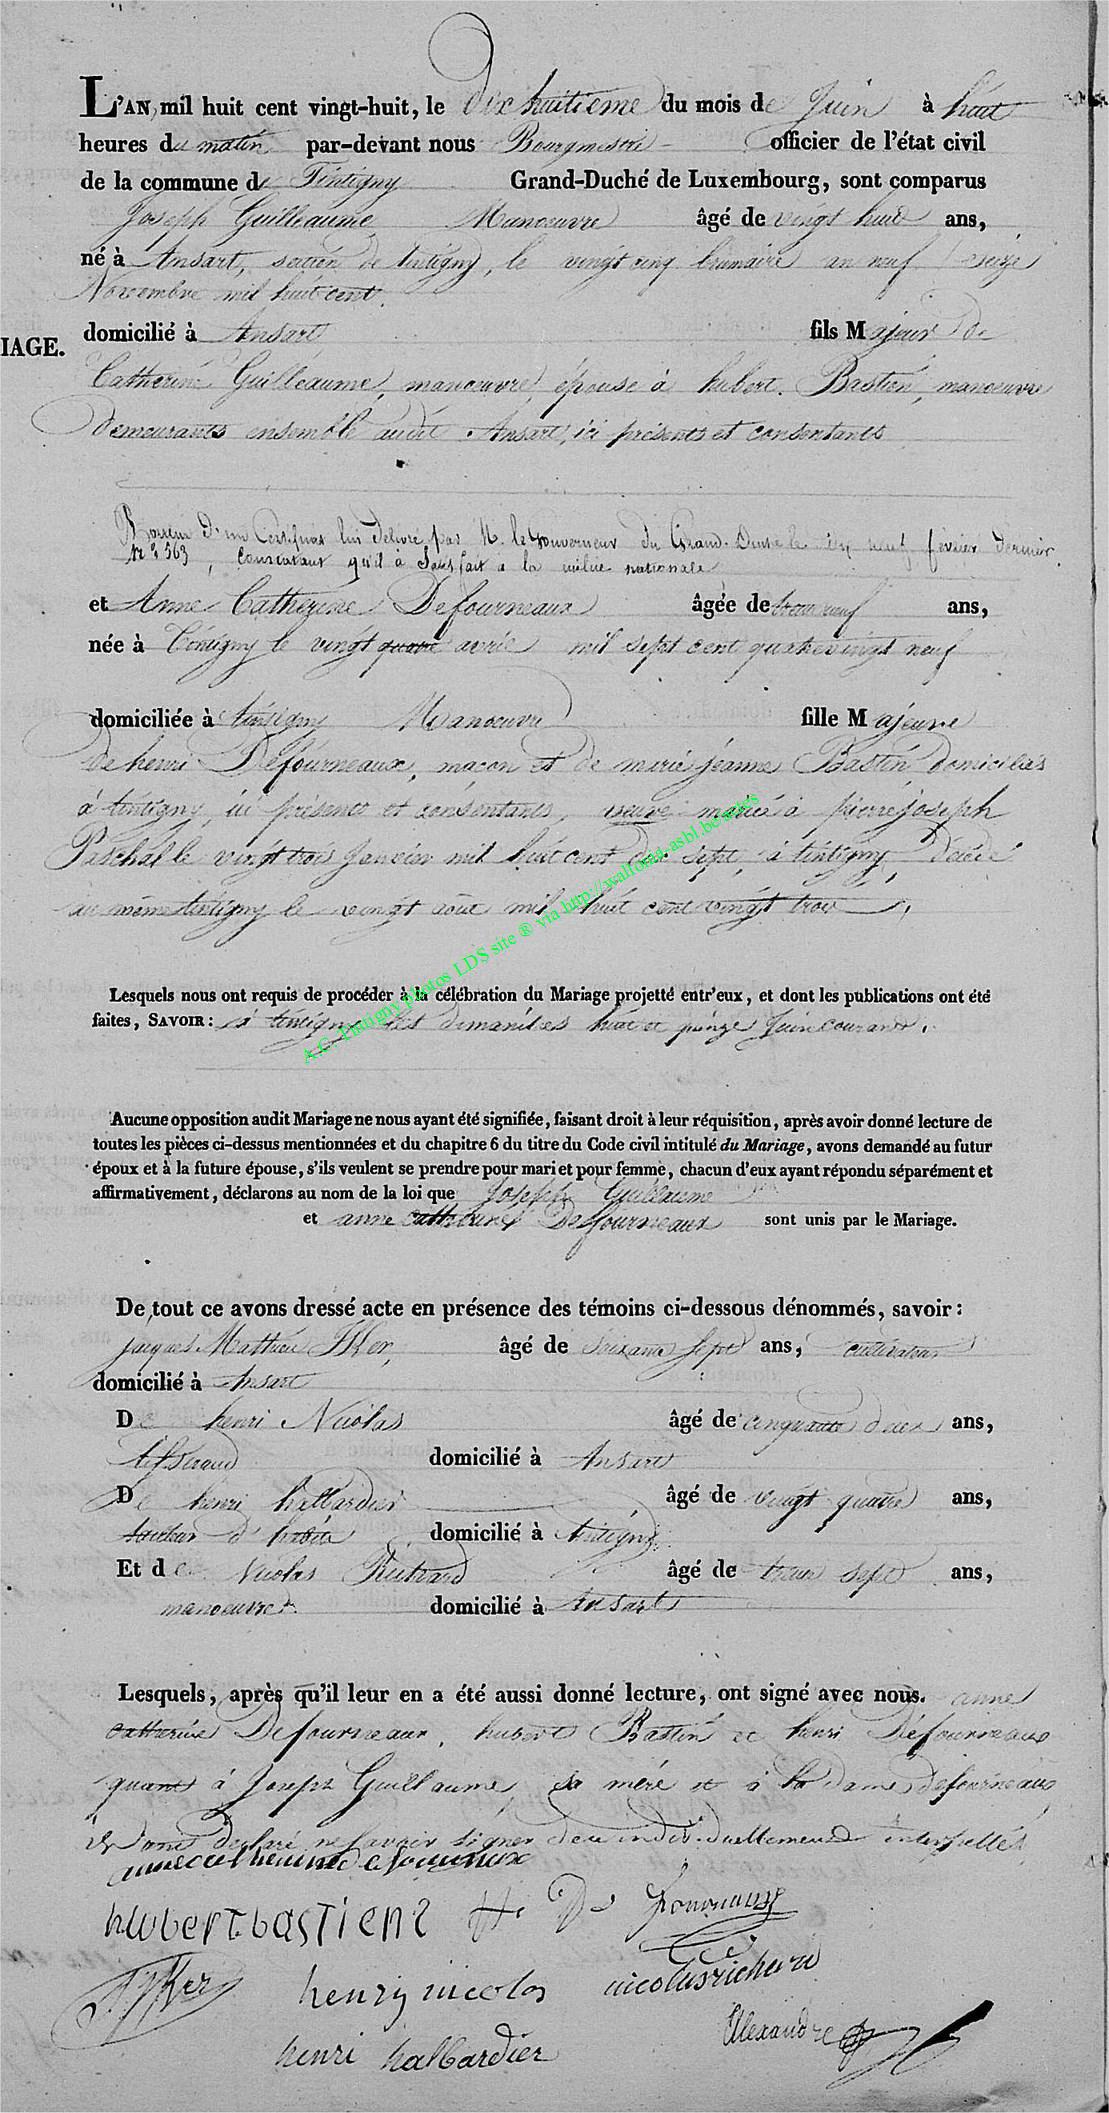 L'AN mil huit cent vingt-huit, le dix huitieme du mois de Juin à huit
heures du matin par-devant nous Bourgmestre officier de l'état civil
de la commune de Tintigny Grand-Duché de Luxembourg, sont comparus
Joseph Guilleaume Manoeuvre âgé de vingt huit ans,
né à Ansart, section de tintigny, le vingt cinq brumaire an neuf seize
Novembre mil huit cent.
IAGE.
domicilié à Ansart fils Majeur de
Catherine Guilleaume, manoeuvre, épouse à hubert Bastien, manoeuvre
demeurants ensemble audit Ansart, ici présents et consentants
d'un Certificat lui délivré par M. le Gouverneur du Grand-Duché le dix neuf février dernier
N° 3563, Constatant qu'il à Satisfait a la milice nationale
et Anne Catherine Defourneaux âgée de trente neuf ans,
née à Tintigny le vingt quatre avril mil sept cent quatrevingt neuf
domiciliée à tintigny Manoeuvre fille Majeure
de henri Defourneaux, maçon et de marie jeanne Bastin domiciliés
à tintigny, ici présents et consentants, veuve mariée à pierre joseph
Paschal le vingt trois Janvier mil huit cent dix sept, à tintigny, décédé
au même tintigny le vingt août mil huit cent vingt trois.
Lesquels nous ont requis de procéder à la célébration du Mariage projetté entr'eux, et dont les publications ont été
faites, SAVOIR: à tintigny les dimanches huit et quinze Juin courant.
A.C. Tintigny photos LDS site ® via http://wallonia-asbl.be/actes
Aucune opposition audit Mariage ne nous ayant été signifiée, faisant droit à leur réquisition, après avoir donné lecture de
toutes les pièces ci-dessus mentionnées et du chapitre 6 du titre du Code civil intitulé du Mariage, avons demandé au futur
époux et à la future épouse, s'ils veulent se prendre pour mari et pour femme, chacun d'eux ayant répondu séparément et
affirmativement, déclarons au nom de la loi que Joseph Guilleaume
et anne catherine Defourneaux sont unis par le Mariage.
De tout ce avons dressé acte en présence des témoins ci-dessous dénommés, savoir:
jacques Mathieu âgé de soixante sept ans, cultivateur
domicilié à Ansart
De henri Nicolas âgé de cinquante deux ans,
tisserand domicilié à Ansart
De henri halbardier âgé de vingt quatre ans,
tailleur d'habits domicilié à tintigny
Et de Nicolas Richard âgé de trente sept ans,
manoeuvre domicilié à Ansart
Lesquels, après qu'il leur en a été aussi donné lecture, ont signé avec nous. anne
catherine Defourneaux, hubert Bastin et henri Defourneaux
quant à Joseph Guilleaume, sa mère et à la dame defourneaux
ont déclaré ne savoir signer de ce individuellement interpellés
anne catherine defourneaux
hubert bastiens H. De fournaux
henry nicolas nicolas richard
henri halbardier Alexandre